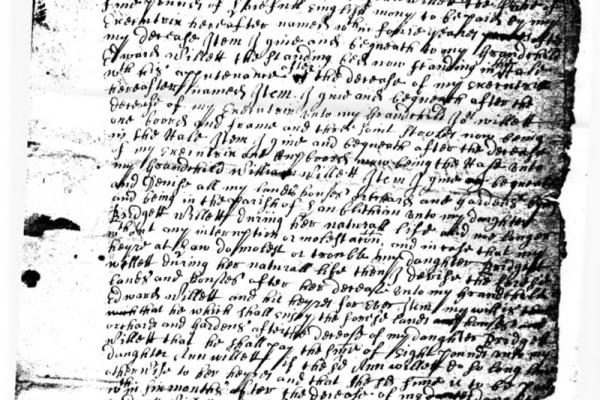 pounds of lawfull English mony to be paid by my
Executrix hereafter named within foure yeares
my decease Item I give and bequeath to my Grandchild
Edward Willett the standing bed now standing in the
wth his appurtenance after the decease of my executrix
hereafter named Item I give and bequeath after the
decease of my Executrix unto my Grandchild Willett
one boord and frame and three Joint stooles now being
in the Hale Item I give and bequeath after the decease
of my Executrix one boord now being the Hale unto
my Grandchild William Willett Item I give & bequeath
and Devise all my lands houses orchards and Gardens
and being in the parish of Lanblithian unto my daughter
Bridgett Willett during her naturall life and no longer
without any interuption or molestation, and in case that my
heyre at Law do molest or trouble my daughter Bridgett
Willett during her naturall life then I devise the
lands and houses after her decease unto my Grandchild
Edward Willett and his heyres for Ever Item my will is
that he which shall enjoy the foresd lands and houses
orchards and Gardens after the decease of my daughter Bridgett
Willett that he shall pay the sume of Eight pounds unto my
daughter Ann Willett if the sd Ann Willett be so long
otherwise to her heyres and that the sd sume is to be
wthin six months after the decease of my daughter